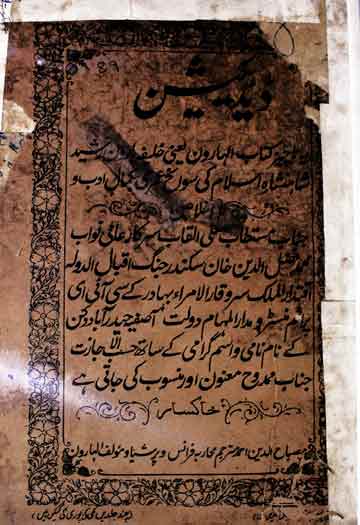 ڈیڈیکیشن
کتاب الہارون یعنی خلیفہ ہارون رشید
شاہنشاہ اسلام کی سوانح عمری کمال ادب و
جناب مستطاب معلی القاب سرکار عالی نواب
محمد فضل الدین خان سکندر جنگ اقبال الدولہ
اقتدار الملک سر وقار الامراء بہادر کے سی آئی ای
پرائم منسٹر و مدار المہام دولت آصفیہ حیدرآباد دکن
کے نام نامی و اسم گرامی کے ساتھ حسب اجازت
جناب ممدوح معنون اور منسوب کی جاتی ہے
خاکسار
مصباح الدین احمد مترجم محاربہ فرانس و پرشیا و مولف الہارون